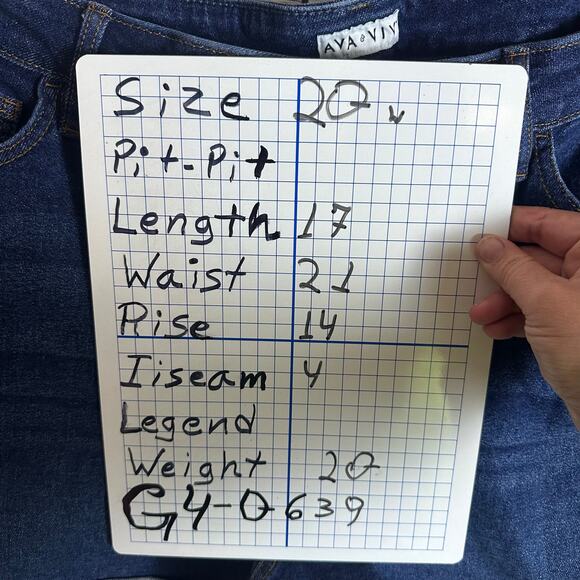 AVA & VIV
Size 20 w
Pit-Pit
Length 17
Waist 21
Rise 14
Iiseam 4
Legend
Weight 20
G4-0639